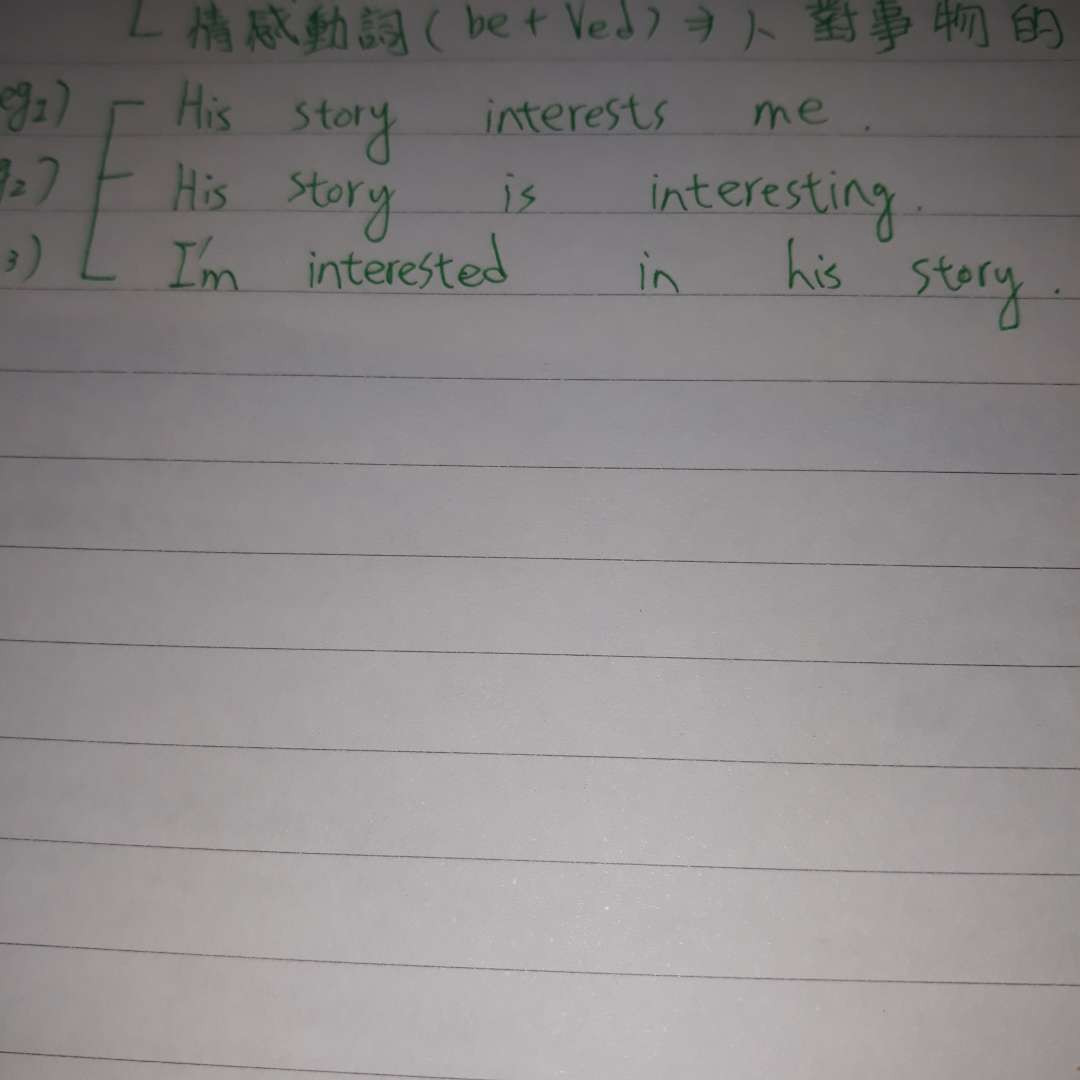 情感動詞(be + Ved) ⇒ 人 對事物的
eg1) His story interests me.
2) His story is interesting.
3) I'm interested in his story.